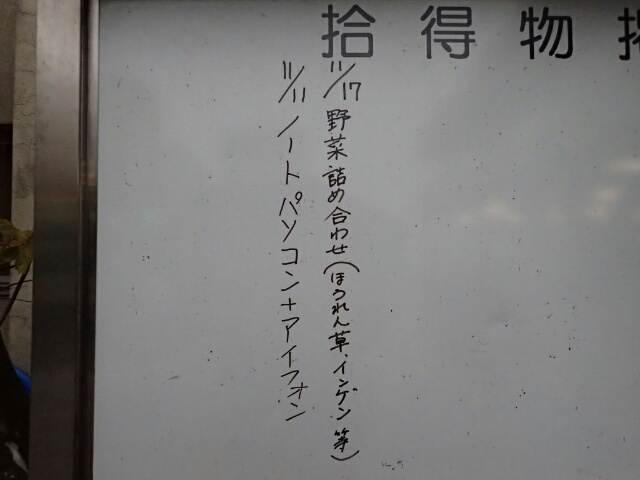 拾得物掲
11/17 野菜詰め合わせ(ほうれん草、インゲン等)
11/11 ノートパソコン+アイフォン